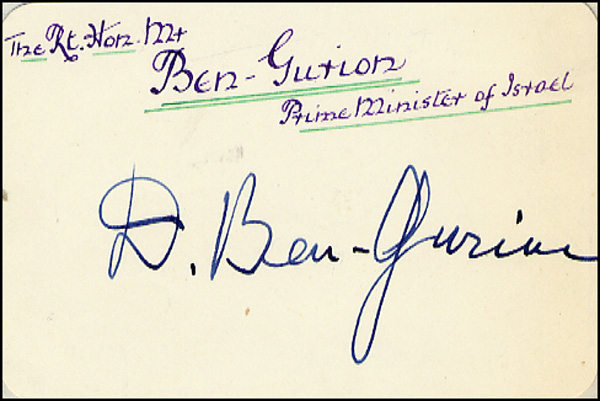 The Rt. Hon. Mr
Ben-Gurion
Prime Minister of Israel
D. Ben-Gurion